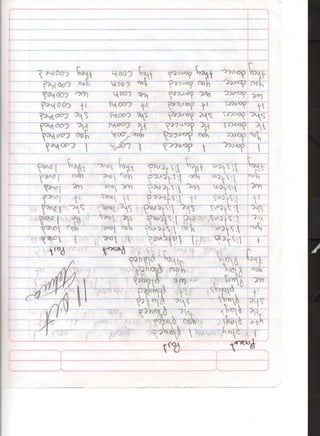 Present Past
I play I played
you plays you played
He plays He played
She plays she played
it plays it played
we play we played
you play you played
they play they played
Present Past
I listen I listened I love I loved
you listen you listened you love you loved
He listens He listened He love He loved
She listens She listened She love She loved
it listens it listened it love it loved
we listen we listened we love we loved
you listen you listened you love you loved
they listen they listened they love they loved
I dance I danced I cook I cooked
you dance you danced you cook you cooked
He dance He danced He cook He cooked
She dance she danced she cook she cooked
it dance it danced it cook it cooked
we dance we danced we cook we cooked
you dance you danced you cook you cooked
they dance they danced they cook they cooked